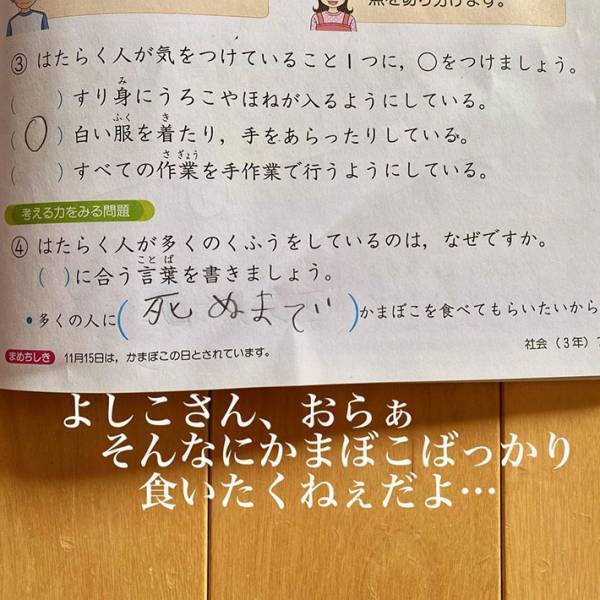 黒を切り分けます。
③はたらく人が気をつけていること1つに，○をつけましょう。
(　)すり身にうろこやほねが入るようにしている。
(○)白い服を着たり，手をあらったりしている。
(　)すべての作業を手作業で行うようにしている。
考える力をみる問題
④はたらく人が多くのくふうをしているのは，なぜですか。
(　)に合う言葉を書きましょう。
•多くの人に(死ぬまで)かまぼこを食べてもらいたいから
社会（3年）7
まめちしき 11月15日は，かまぼこの日とされています。
よしこさん、おらぁ
そんなにかまぼこばっかり
食いたくねぇだよ…